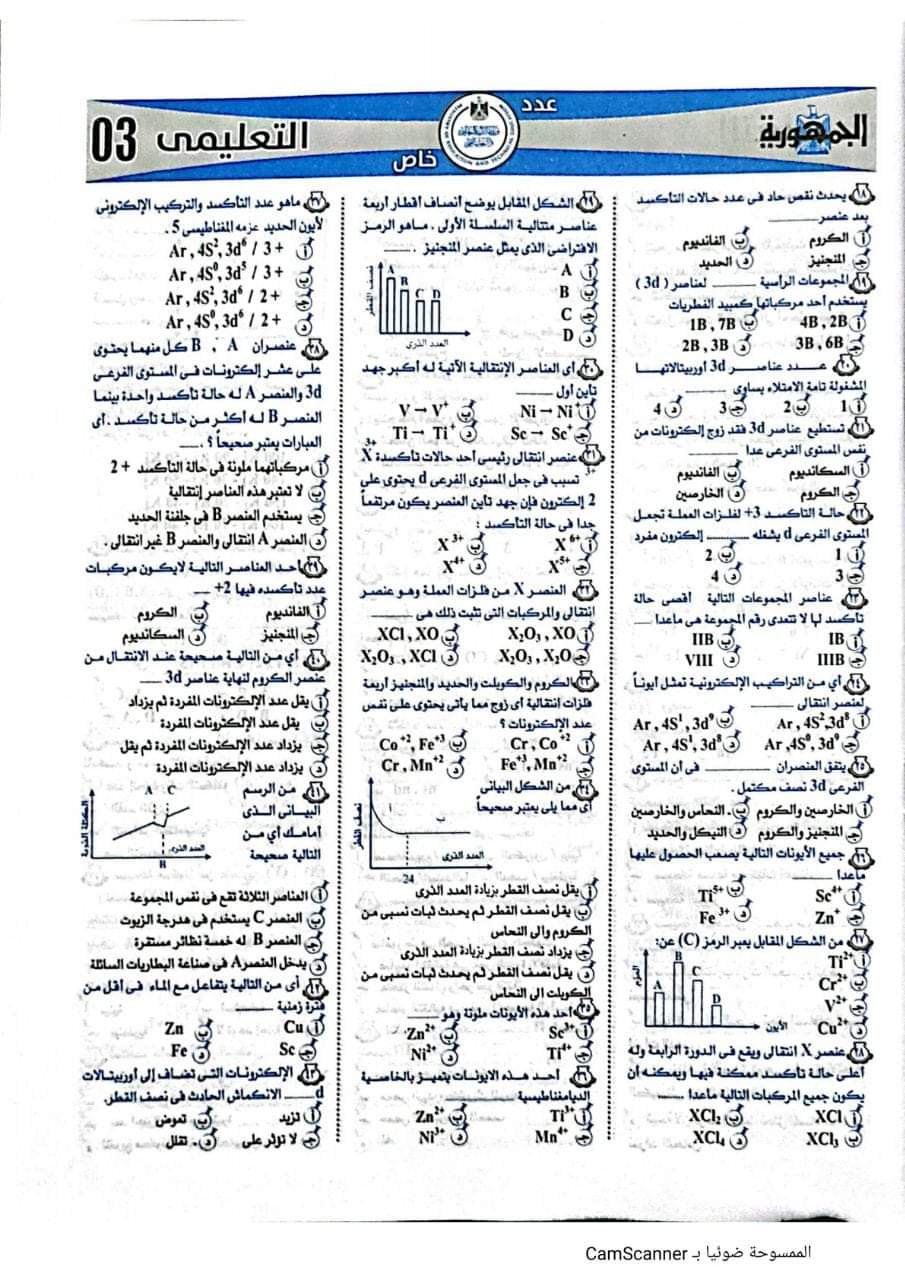 الجمهورية
عدد
خاص
التعليمى 03
١٨ يحدث نقص حاد فى عدد حالات التأكسد
بعد عنصر
أ الكروم ب الفانديوم
ج المنجنيز د الحديد
١٩ المجموعات الرأسية ــــ لعناصر ( 3d )
يستخدم أحد مركباتها كمبيد الفطريات
أ 4B , 2B ب 1B , 7B
ج 3B , 6B د 2B , 3B
٢٠ عـــدد عناصـــر 3d أوربيتالاتهـا
المشغولة تامة الامتلاء يساوى ــــ
أ 1 ب 2 ج 3 د 4
٢١ تستطيع عناصر 3d فقد زوج إلكترونات من
نفس المستوى الفرعى عدا ــــ
أ السكانديوم ب الفانديوم
ج الكروم د الخارصين
٢٢ حالة التأكسد 3+ لفلزات العملة تجعل
المستوى الفرعى d يشغله ــــ إلكترون مفرد
أ 1 ب 2
ج 3 د 4
٢٣ عناصر المجموعات التالية أقصى حالة
تأكسد لها لا تتعدى رقم المجموعة هى ماعدا ــــ
أ IB ب IIB
ج IIIB د VIII
٢٤ أي من التراكيب الإلكترونية تمثل أيوناً
لعنصر انتقالى ــــ
أ Ar , 4S², 3d⁸ ب Ar , 4S¹, 3d⁹
ج Ar , 4S⁰, 3d⁹ د Ar , 4S¹, 3d⁸
٢٥ يتفق العنصران ــــ فى أن المستوى
الفرعى 3d نصف مكتمل .
أ الخارصين والكروم ب . النحاس والخارصين
ج المنجنيز والكروم د النيكل والحديد
٢٦ جميع الأيونات التالية يصعب الحصول عليها
ماعدا ــــ
أ Sc⁴⁺ ب Ti⁵⁺
ج Zn⁺ د Fe³⁺
٢٧ من الشكل المقابل يعبر الرمز (C) عن:
أ Ti²⁺
ب Cr²⁺
ج V²⁺
د Cu²⁺
العزم
A B C D
الأيون
٢٨ عنصر X انتقالى ويقع فى الدورة الرابعة وله
أعلى حالة تأكسد ممكنة فيها ويمكنه أن
يكون جميع المركبات التالية ماعدا ــــ
أ XCl ب XCl₂
ج XCl₃ د XCl₄
٢٩ الشكل المقابل يوضح أنصاف أقطار أربعة
عناصر متتالية السلسلة الأولى . ماهو الرمز
الافتراضى الذى يمثل عنصر المنجنيز ــــ
أ A
ب B
ج C
د D
نصف القطر
A B C D
العدد الذرى
٣٠ أى العناصر الإنتقالية الآتية له أكبر جهد
تاين أول ــــ
أ Ni → Ni⁺ ب V → V⁺
ج Sc → Sc⁺ د Ti → Ti⁺
٣١ عنصر انتقالى رئيسى أحد حالات تأكسدة X³⁺
تسبب فى جعل المستوى الفرعى d يحتوى على
2 إلكترون فإن جهد تاين العنصر يكون مرتفعاً
جدا فى حالة التأكسد :
أ X⁶⁺ ب X³⁺
ج X⁵⁺ د X⁴⁺
٣٢ العنصر X من فلزات العملة وهو عنصر
انتقالى والمركبات التى تثبت ذلك هى ــــ
أ X₂O₃ , XO ب XCl , XO
ج X₂O₃ , X₂O د X₂O₃ , XCl
٣٣ الكروم والكوبلت والحديد والمنجنيز أربعة
فلزات انتقالية أى زوج مما يأتى يحتوى على نفس
عدد الإلكترونات ؟
أ Cr , Co⁺² ب Co⁺², Fe⁺³
ج Fe⁺³, Mn⁺² د Cr , Mn⁺²
٣٤ من الشكل البيانى
أى مما يلى يعتبر صحيحاً
نصف القطر
أ ب
العدد الذرى
24
أ يقل نصف القطر بزيادة العدد الذرى
ب يقل نصف القطر ثم يحدث ثبات نسبى من
الكروم والى النحاس
ج يزداد نصف القطر بزيادة العدد الذرى
د يقل نصف القطر ثم يحدث ثبات نسبى من
الكوبلت الى النحاس
٣٥ أحد هذه الأيونات ملونة وهو ــــ
أ Sc³⁺ ب Zn²⁺
ج Ti⁴⁺ د Ni²⁺
٣٦ أحـد هـذه الايونـات يتميـز بالخاصية
الديامغناطيسية ــــ
أ Ti³⁺ ب Zn²⁺
ج Mn⁴⁺ د Ni³⁺
٣٧ ماهو عدد التأكسد والتركيب الإلكترونى
لأيون الحديد عزمه المغناطيسى 5 .
أ Ar , 4S², 3d⁶ / 3+
ب Ar , 4S⁰, 3d⁵ / 3+
ج Ar , 4S², 3d⁶ / 2+
د Ar , 4S⁰, 3d⁶ / 2+
٣٨ عنصـران A , B كل منهمـا يحتوى
على عشر إلكترونات فى المستوى الفرعى
3d والعنصر A له حالة تأكسد واحدة بينما
العنصر B لـه أكثـر من حالـة تأكسـد . أى
العبارات يعتبر صحيحاً ؟ . ــــ
أ مركباتهما ملونة فى حالة التأكسد + 2
ب لا تعتبر هذه العناصر إنتقالية
ج يستخدم العنصر B فى جلفنة الحديد
د العنصر A انتقالى والعنصر B غير انتقالى .
٣٩ أحـد العناصر التالية لايكـون مركبـات
عدد تأكسده فيها 2+ ــــ
أ الفانديوم ب الكروم
ج المنجنيز د السكانديوم
٤٠ أي من التالية صحيحة عند الانتقال من
عنصر الكروم لنهاية عناصر 3d ــــ
أ يقل عدد الإلكترونات المفردة ثم يزداد
ب يقل عدد الإلكترونات المفردة
ج يزداد عدد الإلكترونات المفردة ثم يقل
د يزداد عدد الإلكترونات المفردة
٤١ مـن الرسـم
البيـانى الـذى
أمامـك أي مـن
التالية صحيحة
الكتلة الذرية
A C
العدد الذرى
B
أ العناصر الثلاثة تقع فى نفس المجموعة
ب العنصر C يستخدم فى هدرجة الزيوت
ج العنصر B له خمسة نظائر مستقرة
د يدخل العنصر A فى صناعة البطاريات السائلة
٤٢ أى من التالية يتفاعل مع الماء فى أقل من
فترة زمنية ــــ
أ Cu ب Zn
ج Sc د Fe
٤٣ الإلكترونات التى تضاف إلى أوربيتالات
d ــــ الانكماش الحادث فى نصف القطر.
أ تزيد ب تعوض
ج لا تؤثر على د . تقلل
الممسوحة ضوئيا بـ CamScanner